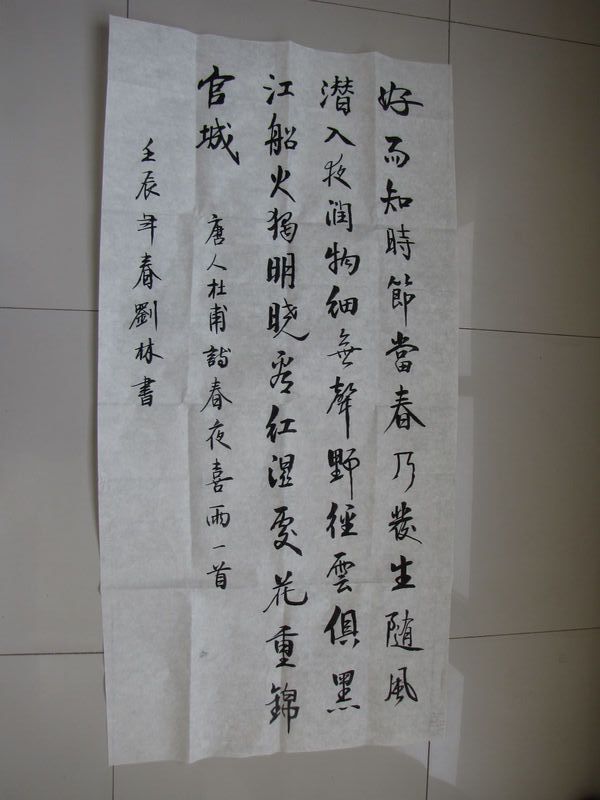 好雨知時節當春乃發生随風
潜入夜润物細無聲野徑雲俱黑
江船火獨明晓看红濕處花重錦
官城
唐人杜甫詩春夜喜雨一首
壬辰年春劉林書